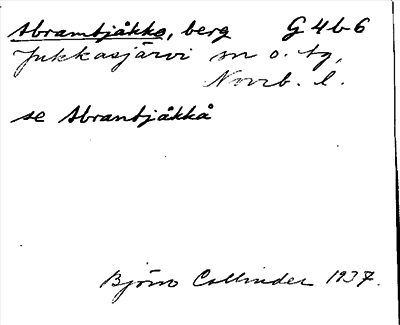 Abramtjåkko, berg G 4 b-6
Jukkasjärvi sn o. tg,
Norrb. l.
se Abrantjåkkå
Björn Collinder 1937.